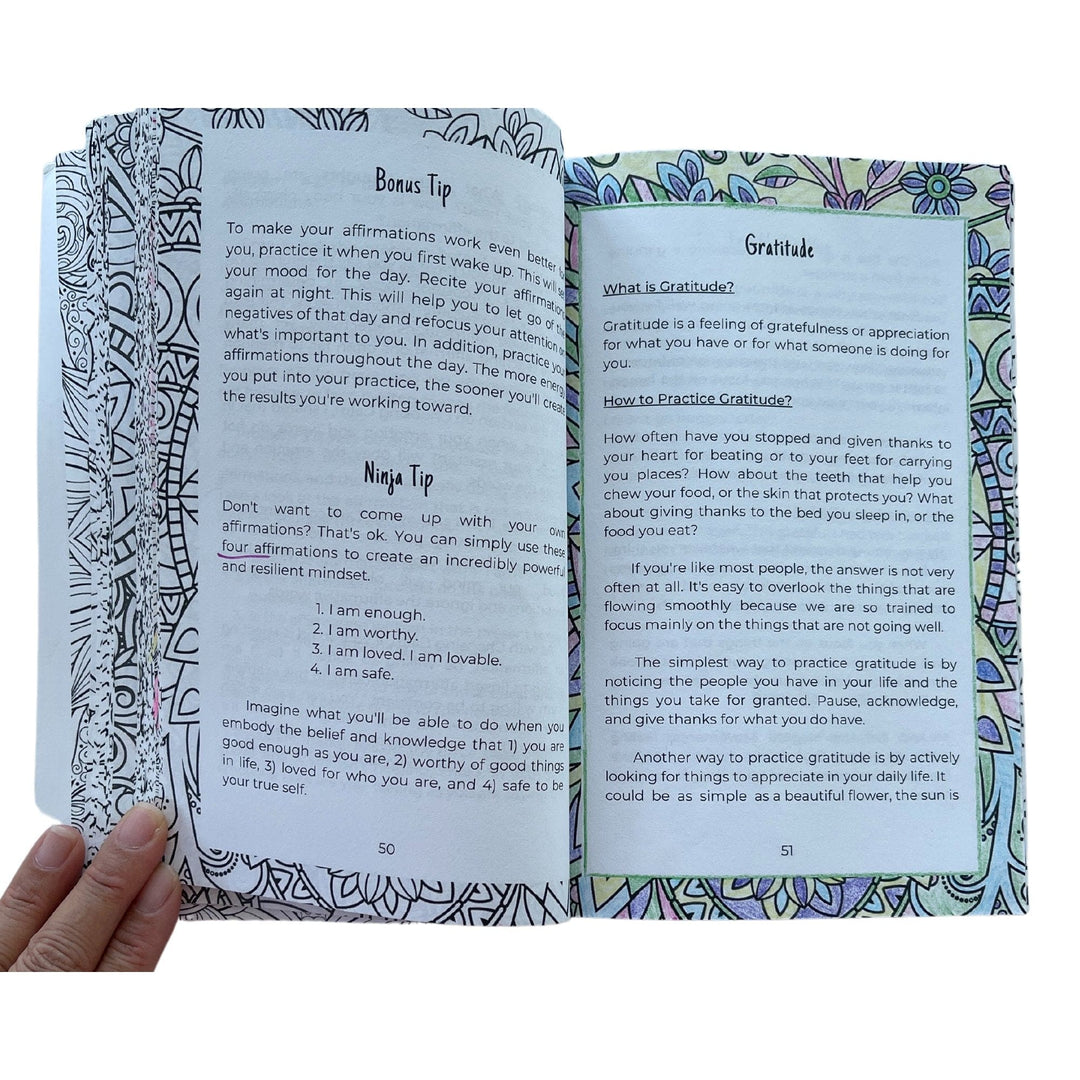 Bonus Tip
To make your affirmations work even better
you, practice it when you first wake up. This will
your mood for the day. Recite your affirmations
again at night. This will help you to let go of the
negatives of that day and refocus your attention on
what's important to you. In addition, practice your
affirmations throughout the day. The more energy
you put into your practice, the sooner you'll create
the results you're working toward.
Ninja Tip
Don't want to come up with your own
affirmations? That's ok. You can simply use these
four affirmations to create an incredibly powerful
and resilient mindset.
1. I am enough.
2. I am worthy.
3. I am loved. I am lovable.
4. I am safe.
Imagine what you'll be able to do when you
embody the belief and knowledge that 1) you are
good enough as you are, 2) worthy of good things
in life, 3) loved for who you are, and 4) safe to be
your true self.
50
Gratitude
What is Gratitude?
Gratitude is a feeling of gratefulness or appreciation
for what you have or for what someone is doing for
you.
How to Practice Gratitude?
How often have you stopped and given thanks to
your heart for beating or to your feet for carrying
you places? How about the teeth that help you
chew your food, or the skin that protects you? What
about giving thanks to the bed you sleep in, or the
food you eat?
If you're like most people, the answer is not very
often at all. It's easy to overlook the things that are
flowing smoothly because we are so trained to
focus mainly on the things that are not going well.
The simplest way to practice gratitude is by
noticing the people you have in your life and the
things you take for granted. Pause, acknowledge,
and give thanks for what you do have.
Another way to practice gratitude is by actively
looking for things to appreciate in your daily life. It
could be as simple as a beautiful flower, the sun is
51